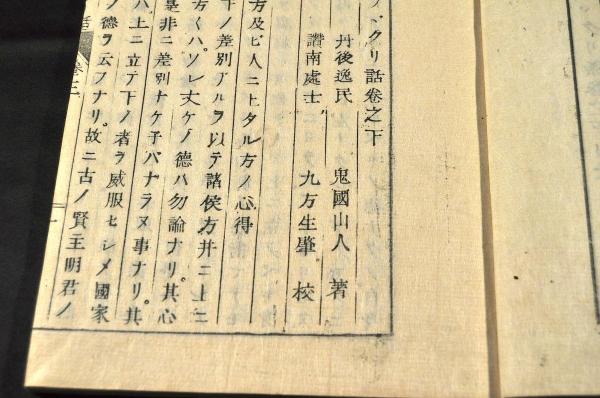 ハクリ話卷之下
丹後逸民　鬼國山人　著
讃南處士　九方生肇　校
方及ビ人ニ上タル方ノ心得
下ノ差別アルヲ以テ諸侯方并ニ上ニ
方々ハソレ丈ケノ德ハ勿論ナリ。其心
是非ニ差別ナケ子バナラヌ事ナリ。其
ハ上ニ立テ下ノ者ヲ威服セシメ國家
ノ德ヲ云フナリ。故ニ古ノ賢主明君ノ
話
卷三
一